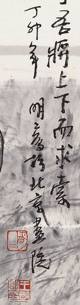 吾將上下而求索
丁卯年
明於北京畫院